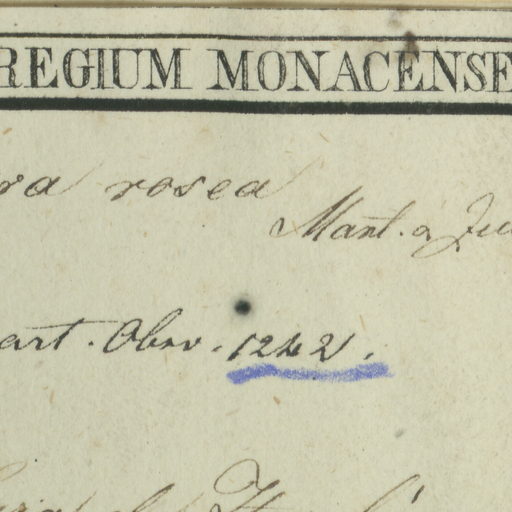 REGIUM MONACENSE
ra rosea
Mant. a Zuc
art. Obsv. 1242.